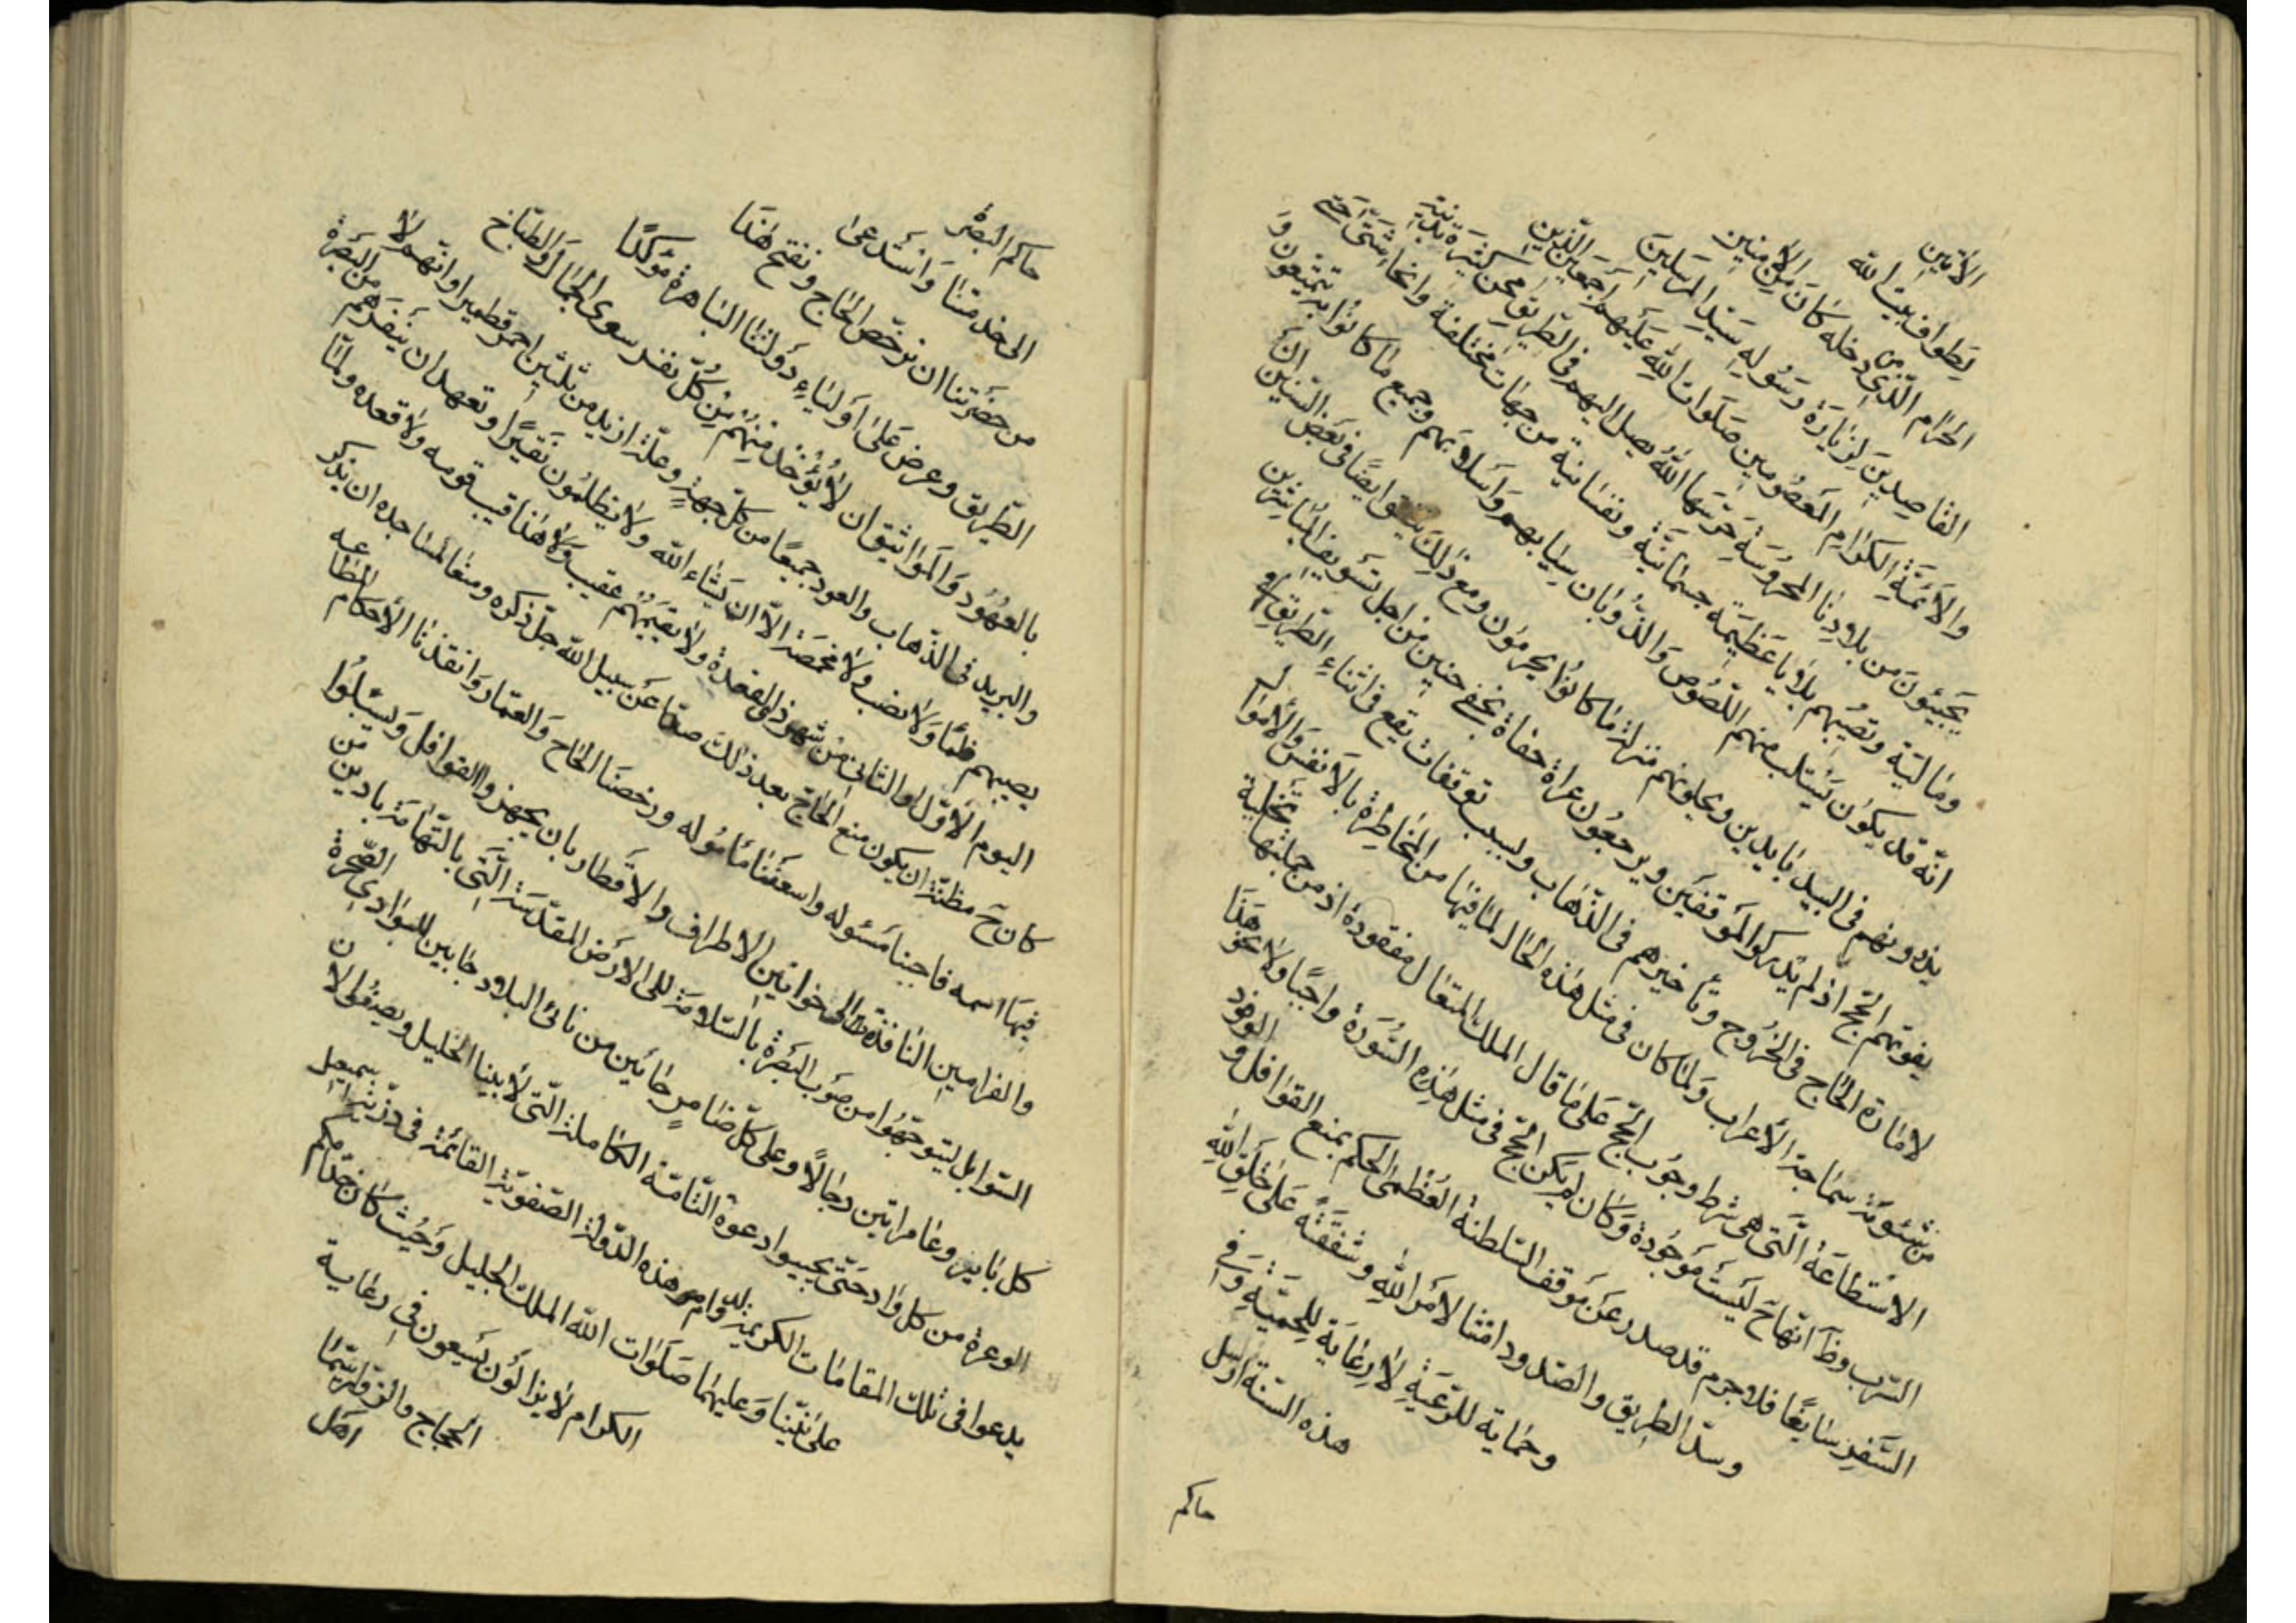 الآمّين
لطواف بيت الله
الحرام الذى من دخله كان من الآمنين
القاصدين لزيارة رسوله سيد المرسلين
والائمة الكرام المعصومين صلوات الله عليهم اجمعين الذين
يجيئون من بلادنا المحروسة حرسها الله يصل اليهم فى الطريق محن كثيرة بدنية
ومالية وتصيبهم بلايا عظيمة جسمانية ونفسانية من جهات مختلفة وانحا شتى حتى
انه قد يكون يستلب منهم اللصوص والذؤبان ثيابهم واسلابهم وجميع ما كانوا به يتمتعون و
يذرونهم فى البيد بايدين ويحلونهم منزلة ما كانوا يحرمون ومع ذلك يتفق ايضا فى بعض السنين ان
يفوتهم الحج اذ لم يدركوا الموقفين ويرجعون عراة حفاة بخفى حنين من اجل تسويف المباشرين
لامارة الحاج فى الخروج وتأخيرهم فى الذهاب وبسبب توقفات يقع فى اثناء الطريق
من شئومة سماجة الاعراب ولما كان فى مثل هذه الحال لما فيها من المخاطرة بالانفس والاموال
الاستطاعة التى هى شرط وجوب الحج على ما قال الملك المتعال مفقودة اذ من جملتها تخلية
السرب وظ انها ح ليست موجودة وكان لم يكن الحج فى مثل هذه السورة واجبا ولا نحو هذا
السفر سايغا فلا جرم قد صدر عن موقف السلطنة العظمى الحكم بمنع القوافل والوفود
وسد الطريق والصدود امتثالا لامر الله وشفقة على خلق الله
وحماية للرعية لا رعاية للحمية وفى
هذه السنة ارسل
حاكم
حاكم البصرة
الى خدمتنا واستدعى
من حضرتنا ان نرخص الحاج ونفتح هذا
الطريق وعرض على اولياء دولتنا الباهرة مؤكدا
بالعهود والمواثيق ان لا يؤخذ منهم من كل نفر سوى الجمال والطباخ
والبريد فى الذهاب والعود جميعا من كل جهة وعلة ازيد من ثلثين احمر قطميرا وانهم لا
يصيبهم ظمأ ولا نصب ولا مخمصة الا ان يشاء الله ولا يظلمون نقيرا وتعهد ان ينفرهم من البصرة
اليوم الاول او الثانى من شهر ذى القعدة ولا يقيمهم عقيب ولا هذا قيب قومه ولا قعده ولما
كان ح مظنة ان يكون منع الحاج بعد ذلك صدا عن سبيل الله جل ذكره ومنعا لمساجده ان يذكر
فيها اسمه فاجبنا مسئوله واسعفنا مأموله ورخصنا الحاج والعمار وانفذنا الاحكام المطاعه
والفرامين النافذة الى خواتين الاطراف والاقطار بان يجهزوا القوافل ويسبلوا
السوابل ليتوجهوا من صوب البصرة بالسلامة الى الارض المقدسة التى بالتهامة بادين من
كل باير وغامر اتين رجالا وعلى كل ضامر جائين من نائى البلاد جابين للبوادى الصحرة
الوعرة من كل واد حتى يجيبوا دعوة التامة الكاملة التى لابينا الخليل ويصيفوا لان
يدعوا فى تلك المقامات الكريمة لدوام هذه الدولة الصفوية القائمة فى ذرية اسمعيل
على نبينا وعليهما صلوات الله الملك الجليل وحيث كان خدامكم
الكرام لا يزالون يسعون فى رعاية
الحجاج والزوار سيما
اهل